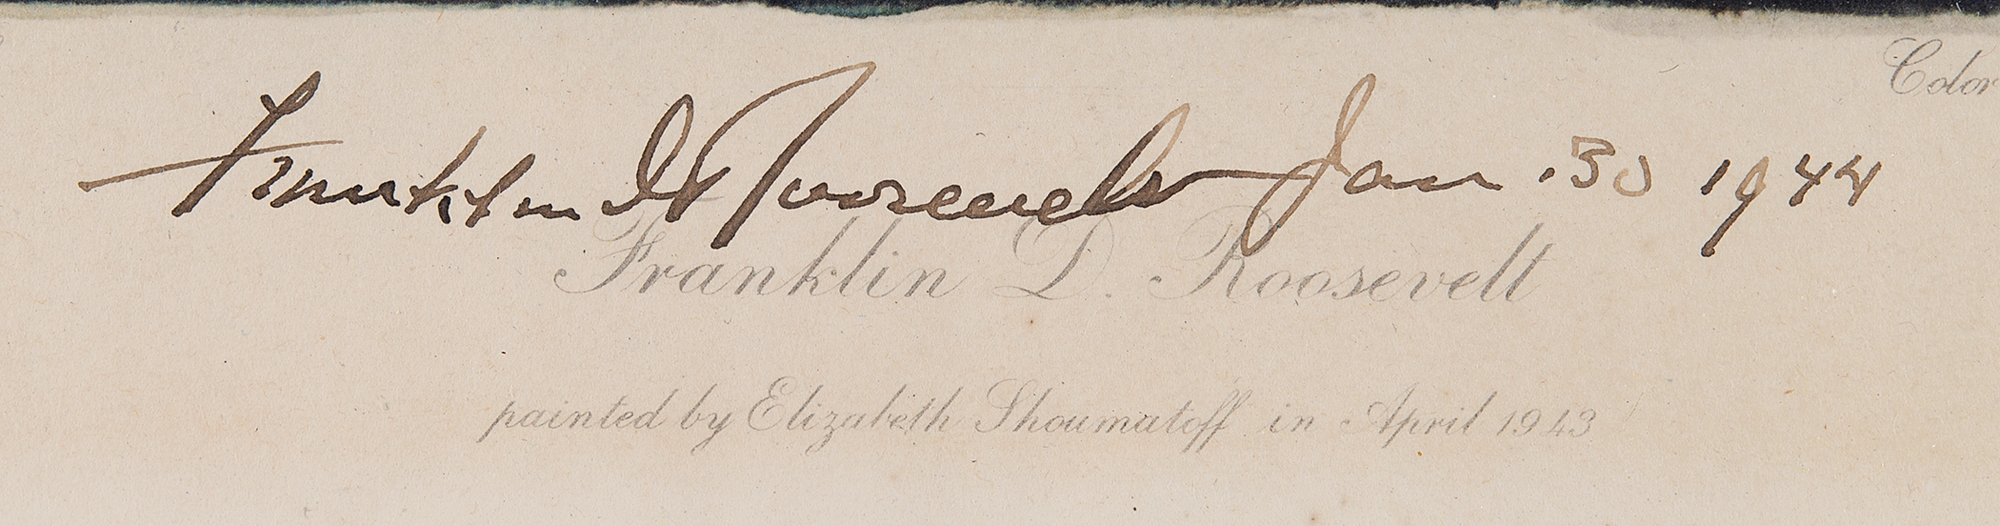 Color
Franklin D Roosevelt Jan. 30 1944
Franklin D. Roosevelt
painted by Elizabeth Shoumatoff in April 1943